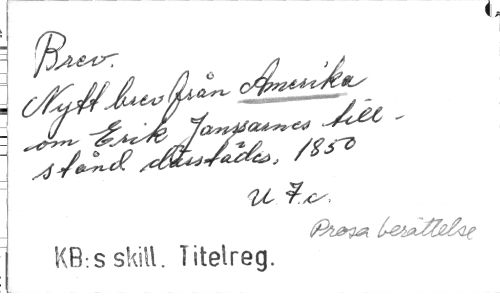 Brev.
Nytt brev från Amerika
om Erik Jansarnes till-
stånd därstädes, 1850
U 7.c.
Prosa berättelse
KB:s skill. Titelreg.